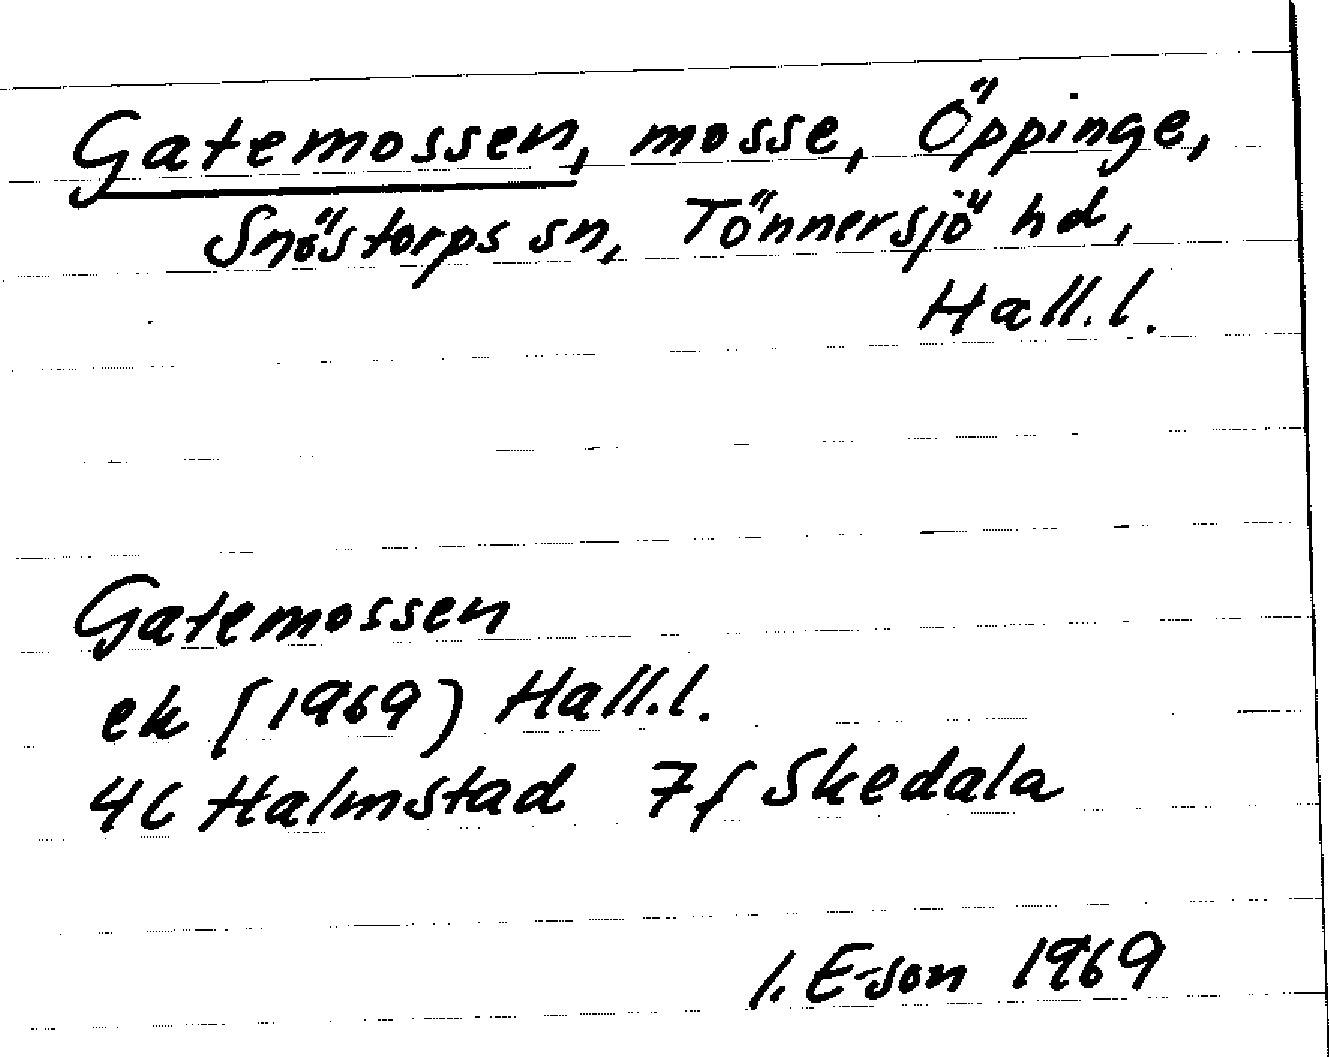 Gatemossen, mosse, Öppinge,
Snöstorps sn, Tönnersjö hd,
Hall.l.
Gatemossen
ek (1969) Hall.l.
4C Halmstad 7f Skedala
I. E-son 1969